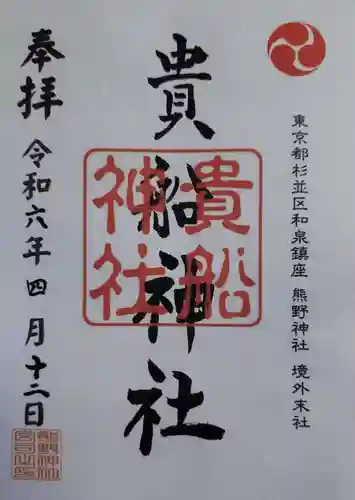 東京都杉並区和泉鎮座 熊野神社 境外末社
貴船神社
貴船
神社
奉拝
令和六年四月十二日